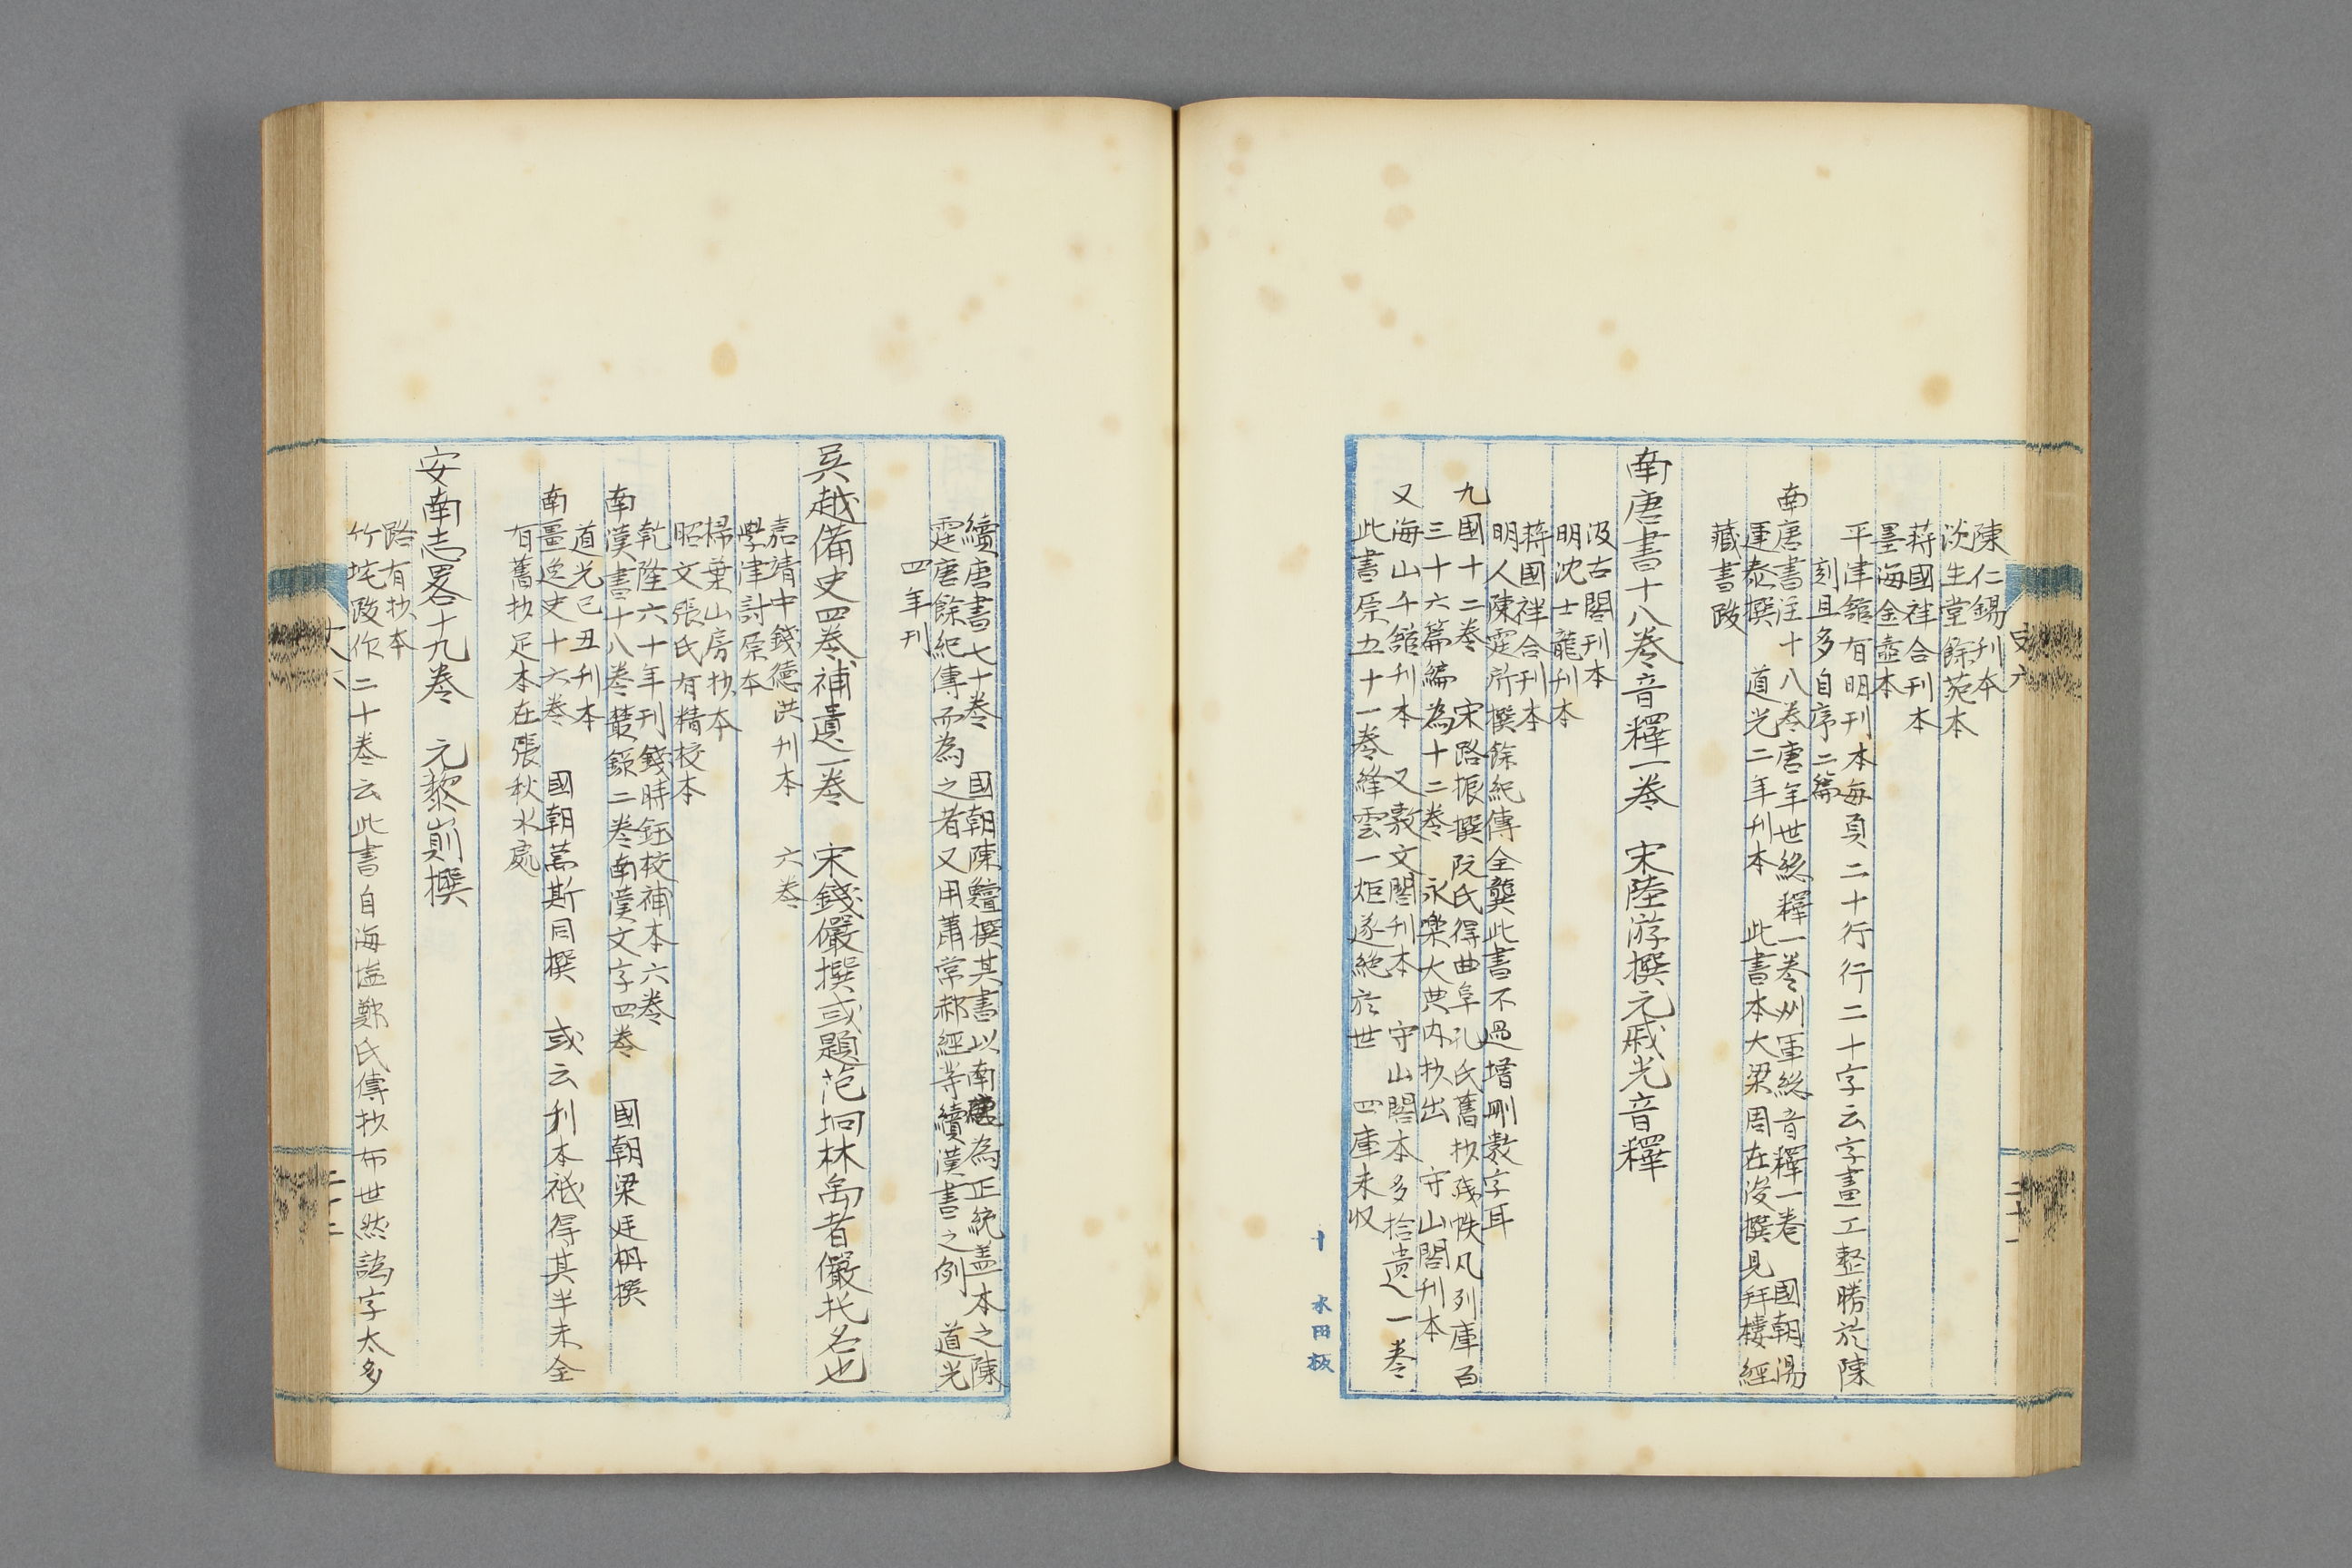 陳仁錫刊本
淡生堂餘苑本
蔣國祥合刊本
墨海金壺本
平津館有明刊本每頁二十行行二十字云字畫工整勝於陳
刻且多自序二篇
南唐書注十八卷唐年世緫釋一卷州軍緫音釋一卷 國朝湯
運泰撰 道光二年刊本 此書本大梁周在浚撰見拜樓經
藏書跋
南唐書十八卷音釋一卷 宋陸游撰元戚光音釋
汲古閣刊本
明沈士龍刊本
蔣國祥合刊本
明人陳霆所撰餘紀傳全龔此書不過増刪數字耳
九國十二卷 宋路振撰阮氏得曲阜孔氏舊抄殘帙凡列庫百
三十六篇編為十二卷 永樂大典內抄出 守山閣刊本
又海山千舘刊本 又敦文閣刊本 守山閣本多拾遺一卷
此書原五十一卷絳雲一炬遂絶於世 四庫未収
水田板
史六
二十一
續唐書七十卷 國朝陳鱣撰其書以南唐為正統盖本之陳
霆唐餘紀傳而為之者又用蕭常郝經等續漢書之例 道光
四年刊
吳越備史四卷補遺一卷 宋錢儼撰或題范坰林禹者儼托名也
嘉靖中錢德洪刊本 六卷
學津討原本
掃葉山房抄本
昭文張氏有精校本
乾隆六十年刊錢時鈺校補本六卷
南漢書十八卷叢錄二卷南漢文字四卷 國朝梁廷枏撰
道光己丑刊本
南畺逸史十六卷 國朝萬斯同撰 或云刋本祗得其半未全
有舊抄足本在張秋水處
安南志畧十九卷 元黎崱撰
路有抄本
竹垞跋作二十卷云此書自海塩鄭氏傳抄布世然譌字太多
二十二